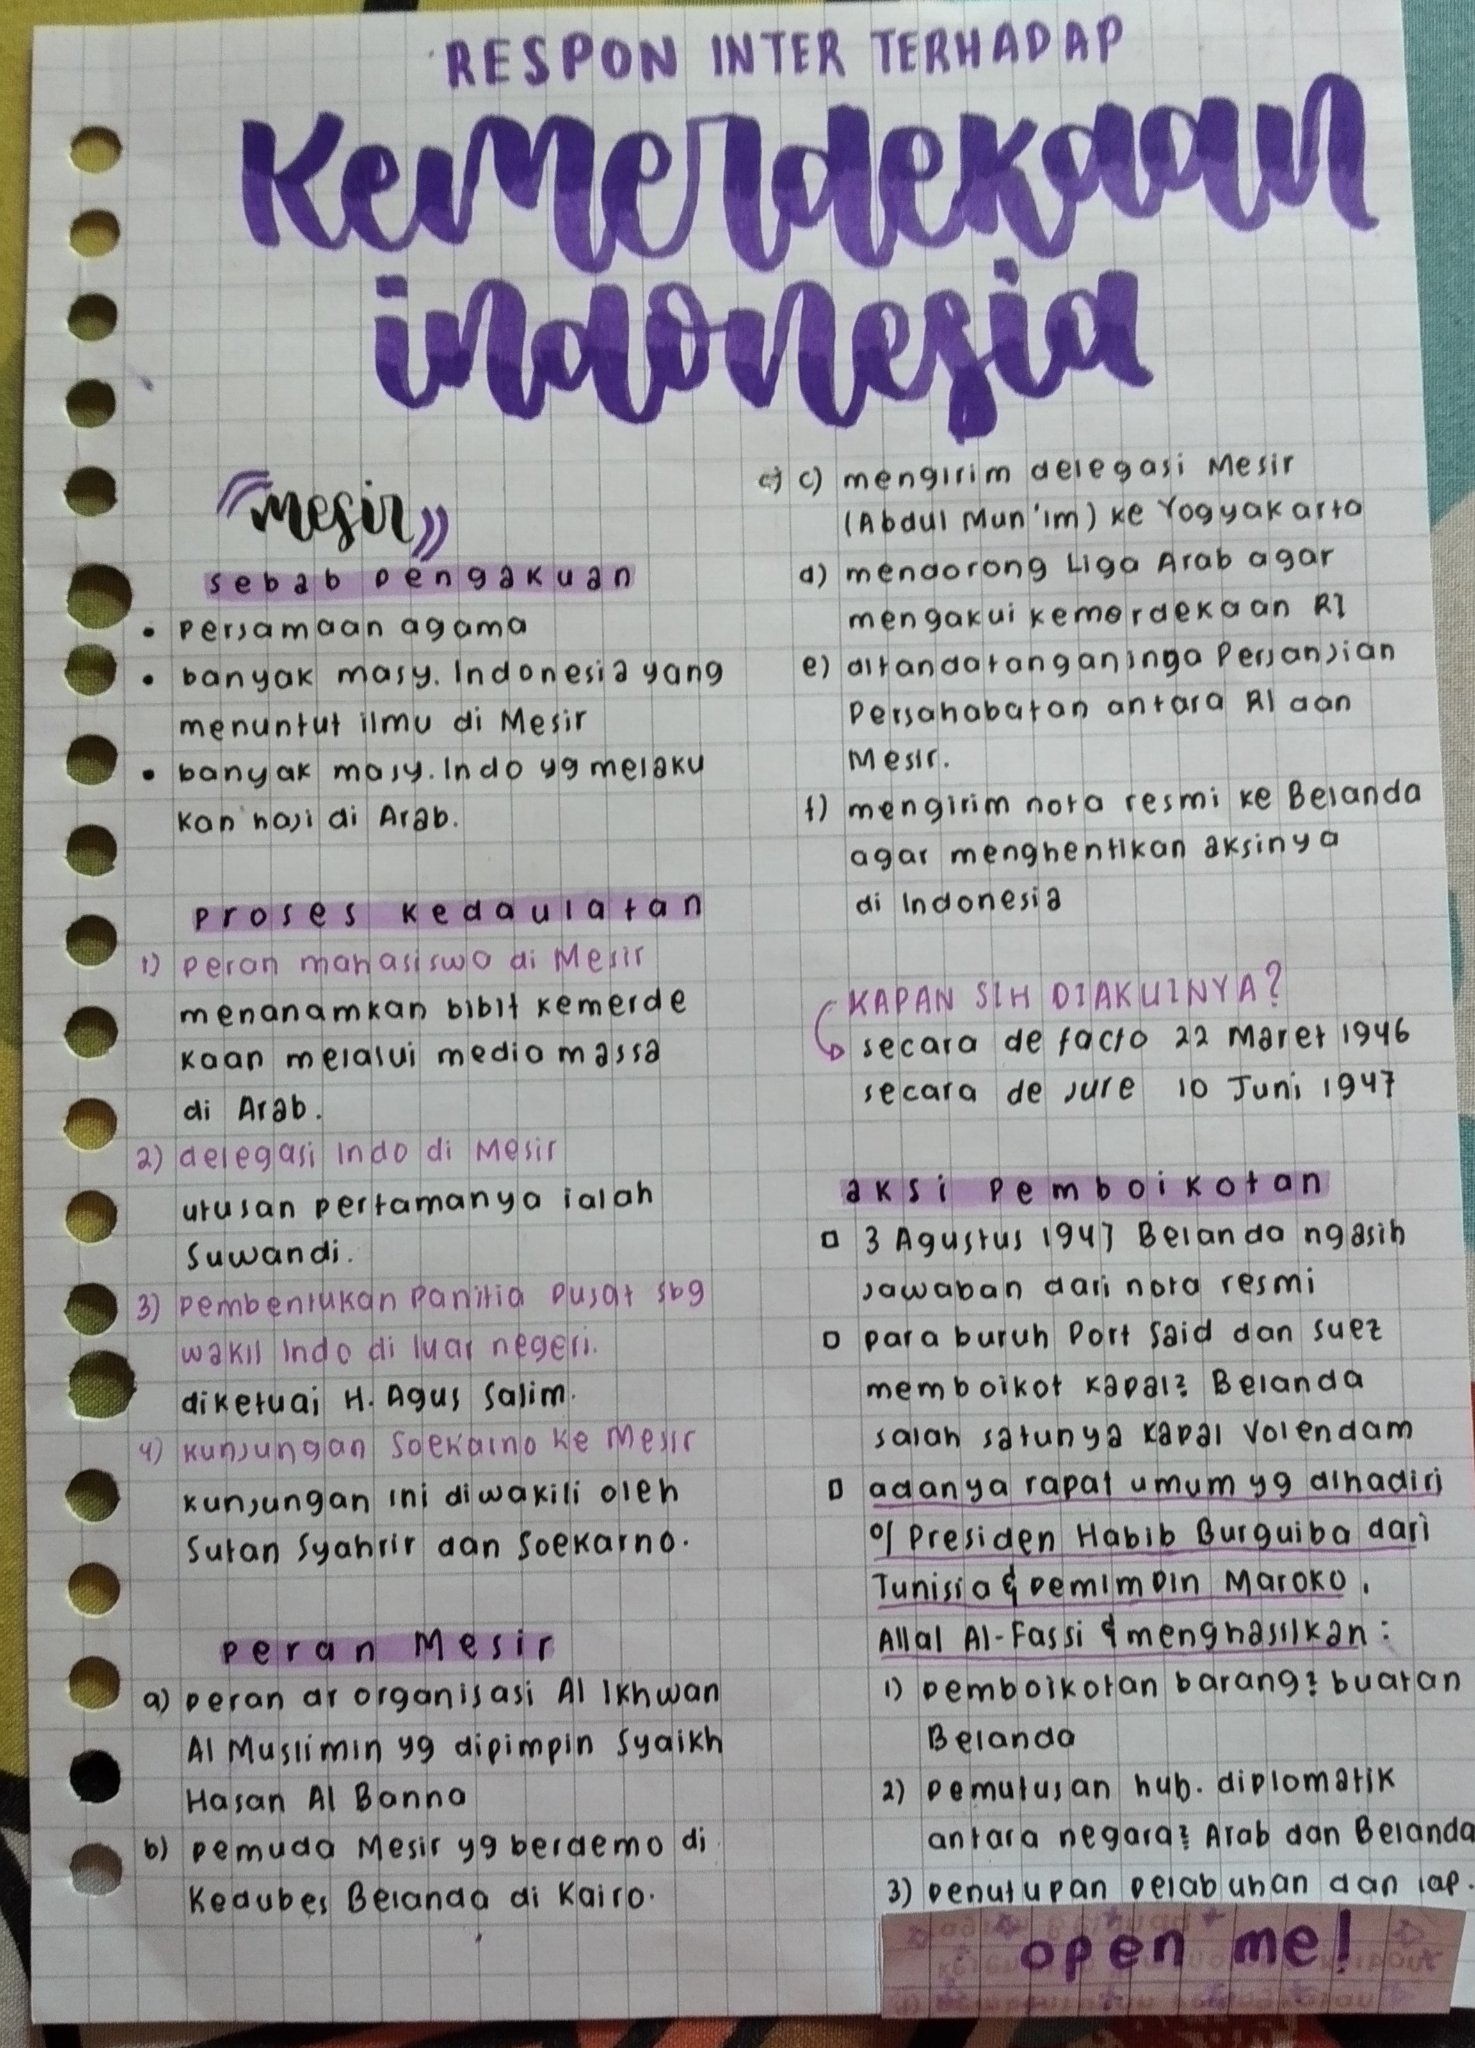 RESPON INTER TERHADAP
Kemerdekaan
indonesia
mesir
sebab pengakuan
• persamaan agama
• banyak masy. Indonesia yang
menuntut ilmu di Mesir
• banyak masy. Indo yg melaku
kan haji di Arab.
proses kedaulatan
1) peran mahasiswa di Mesir
menanamkan bibit kemerde
kaan melalui media massa
di Arab.
2) delegasi Indo di Mesir
utusan pertamanya ialah
Suwandi.
3) pembentukan panitia pusat sbg
wakil Indo di luar negeri.
diketuai H. Agus Salim.
4) kunjungan Soekarno ke Mesir
kunjungan ini diwakili oleh
Sutan Syahrir dan Soekarno.
peran Mesir
a) peran dr organisasi Al Ikhwan
Al Muslimin yg dipimpin Syaikh
Hasan Al Banna
b) pemuda Mesir yg berdemo di
Kedubes Belanda di Kairo.
c) mengirim delegasi Mesir
(Abdul Mun'im) ke Yogyakarta
d) mendorong Liga Arab agar
mengakui kemerdekaan RI
e) ditandatanganinga Perjanjian
Persahabatan antara RI dan
Mesir.
f) mengirim nota resmi ke Belanda
agar menghentikan aksinya
di Indonesia
KAPAN SIH DIAKUINYA?
secara de facto 22 Maret 1946
secara de jure 10 Juni 1947
aksi pemboikotan
3 Agustus 1947 Belanda ngasih
jawaban dari nota resmi
para buruh Port Said dan Suez
memboikot kapal² Belanda
salah satunya kapal Volendam
adanya rapat umum yg dihadiri
o/ Presiden Habib Burguiba dari
Tunisia & pemimpin Maroko,
Allal Al-Fassi & menghasilkan :
1) pemboikotan barang² buatan
Belanda
2) pemutusan hub. diplomatik
antara negara² Arab dan Belanda
3) penutupan pelabuhan dan lap.
open me!